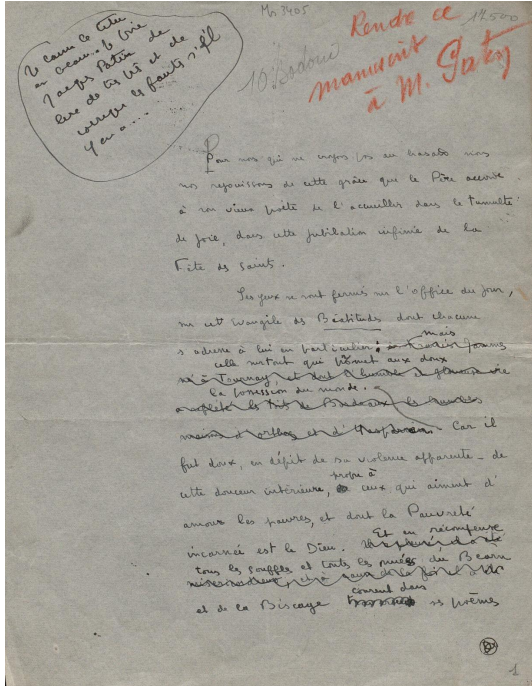 Ms 3405
17500
10 Bodoué
Rendre ce
manuscrit
à M. Paty
Je
au
Jacques Patin de
lire de très et de
corriger les fautes s'il
y en a....
Pour nos qui ne croyons pas au hasard nous
nos rejouissons de cette grâce que le Père accorde
à son vieux poète de l'accueillir dans le tumulte
de joie, dans cette jubilation infinie de la
Fête des Saints.
Ses yeux se sont fermés sur l'office du jour,
sur cet Evangile des Béatitudes dont chacune
s'adresse à lui en particulier; mais
celle surtout qui promet aux doux
à Tournay, et dont
la possession du monde.
les de Bordeaux
mains d'Orthez et d'Hasparren. Car il
fut doux, en dépit de sa violence apparente - de
cette douceur intérieure, propre à ceux qui aiment d'
amour les pauvres, et dont la Pauvreté
incarnée est le Dieu. Et en récompense
tous les souffles et toutes les nuées du Béarn
et de la Biscaye courent dans ses poèmes
1